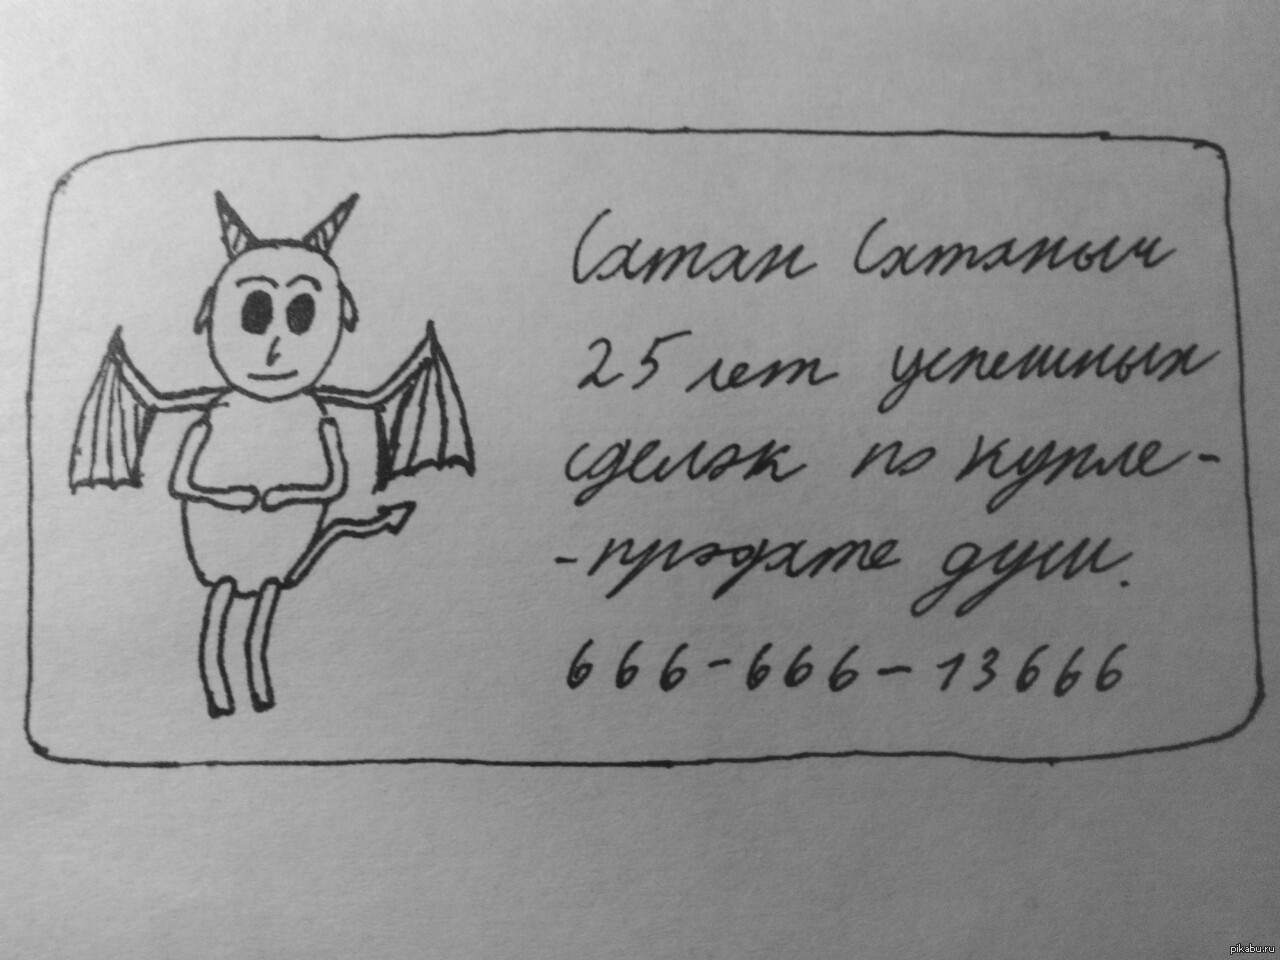 Сатан Сатаныч
25 лет успешных
сделок по купле-
-продаже души.
666-666-13666
pikabu.ru